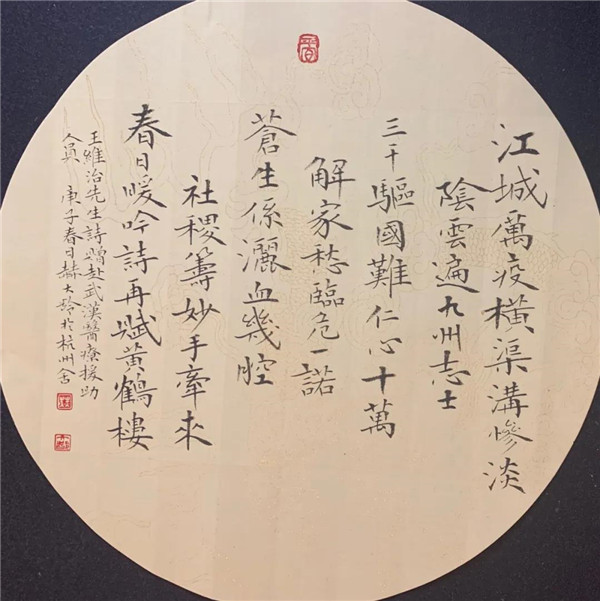 江城萬疫橫渠溝慘淡
陰雲遍九州志士
三千驅國難仁心十萬
解家愁臨危一諾
蒼生係灑血幾腔
社稷籌妙手牽來
春日暖吟詩再賦黃鶴樓
王維治先生詩贈赴武漢醫療援助
人員 庚子春日赫大玲於杭州舍